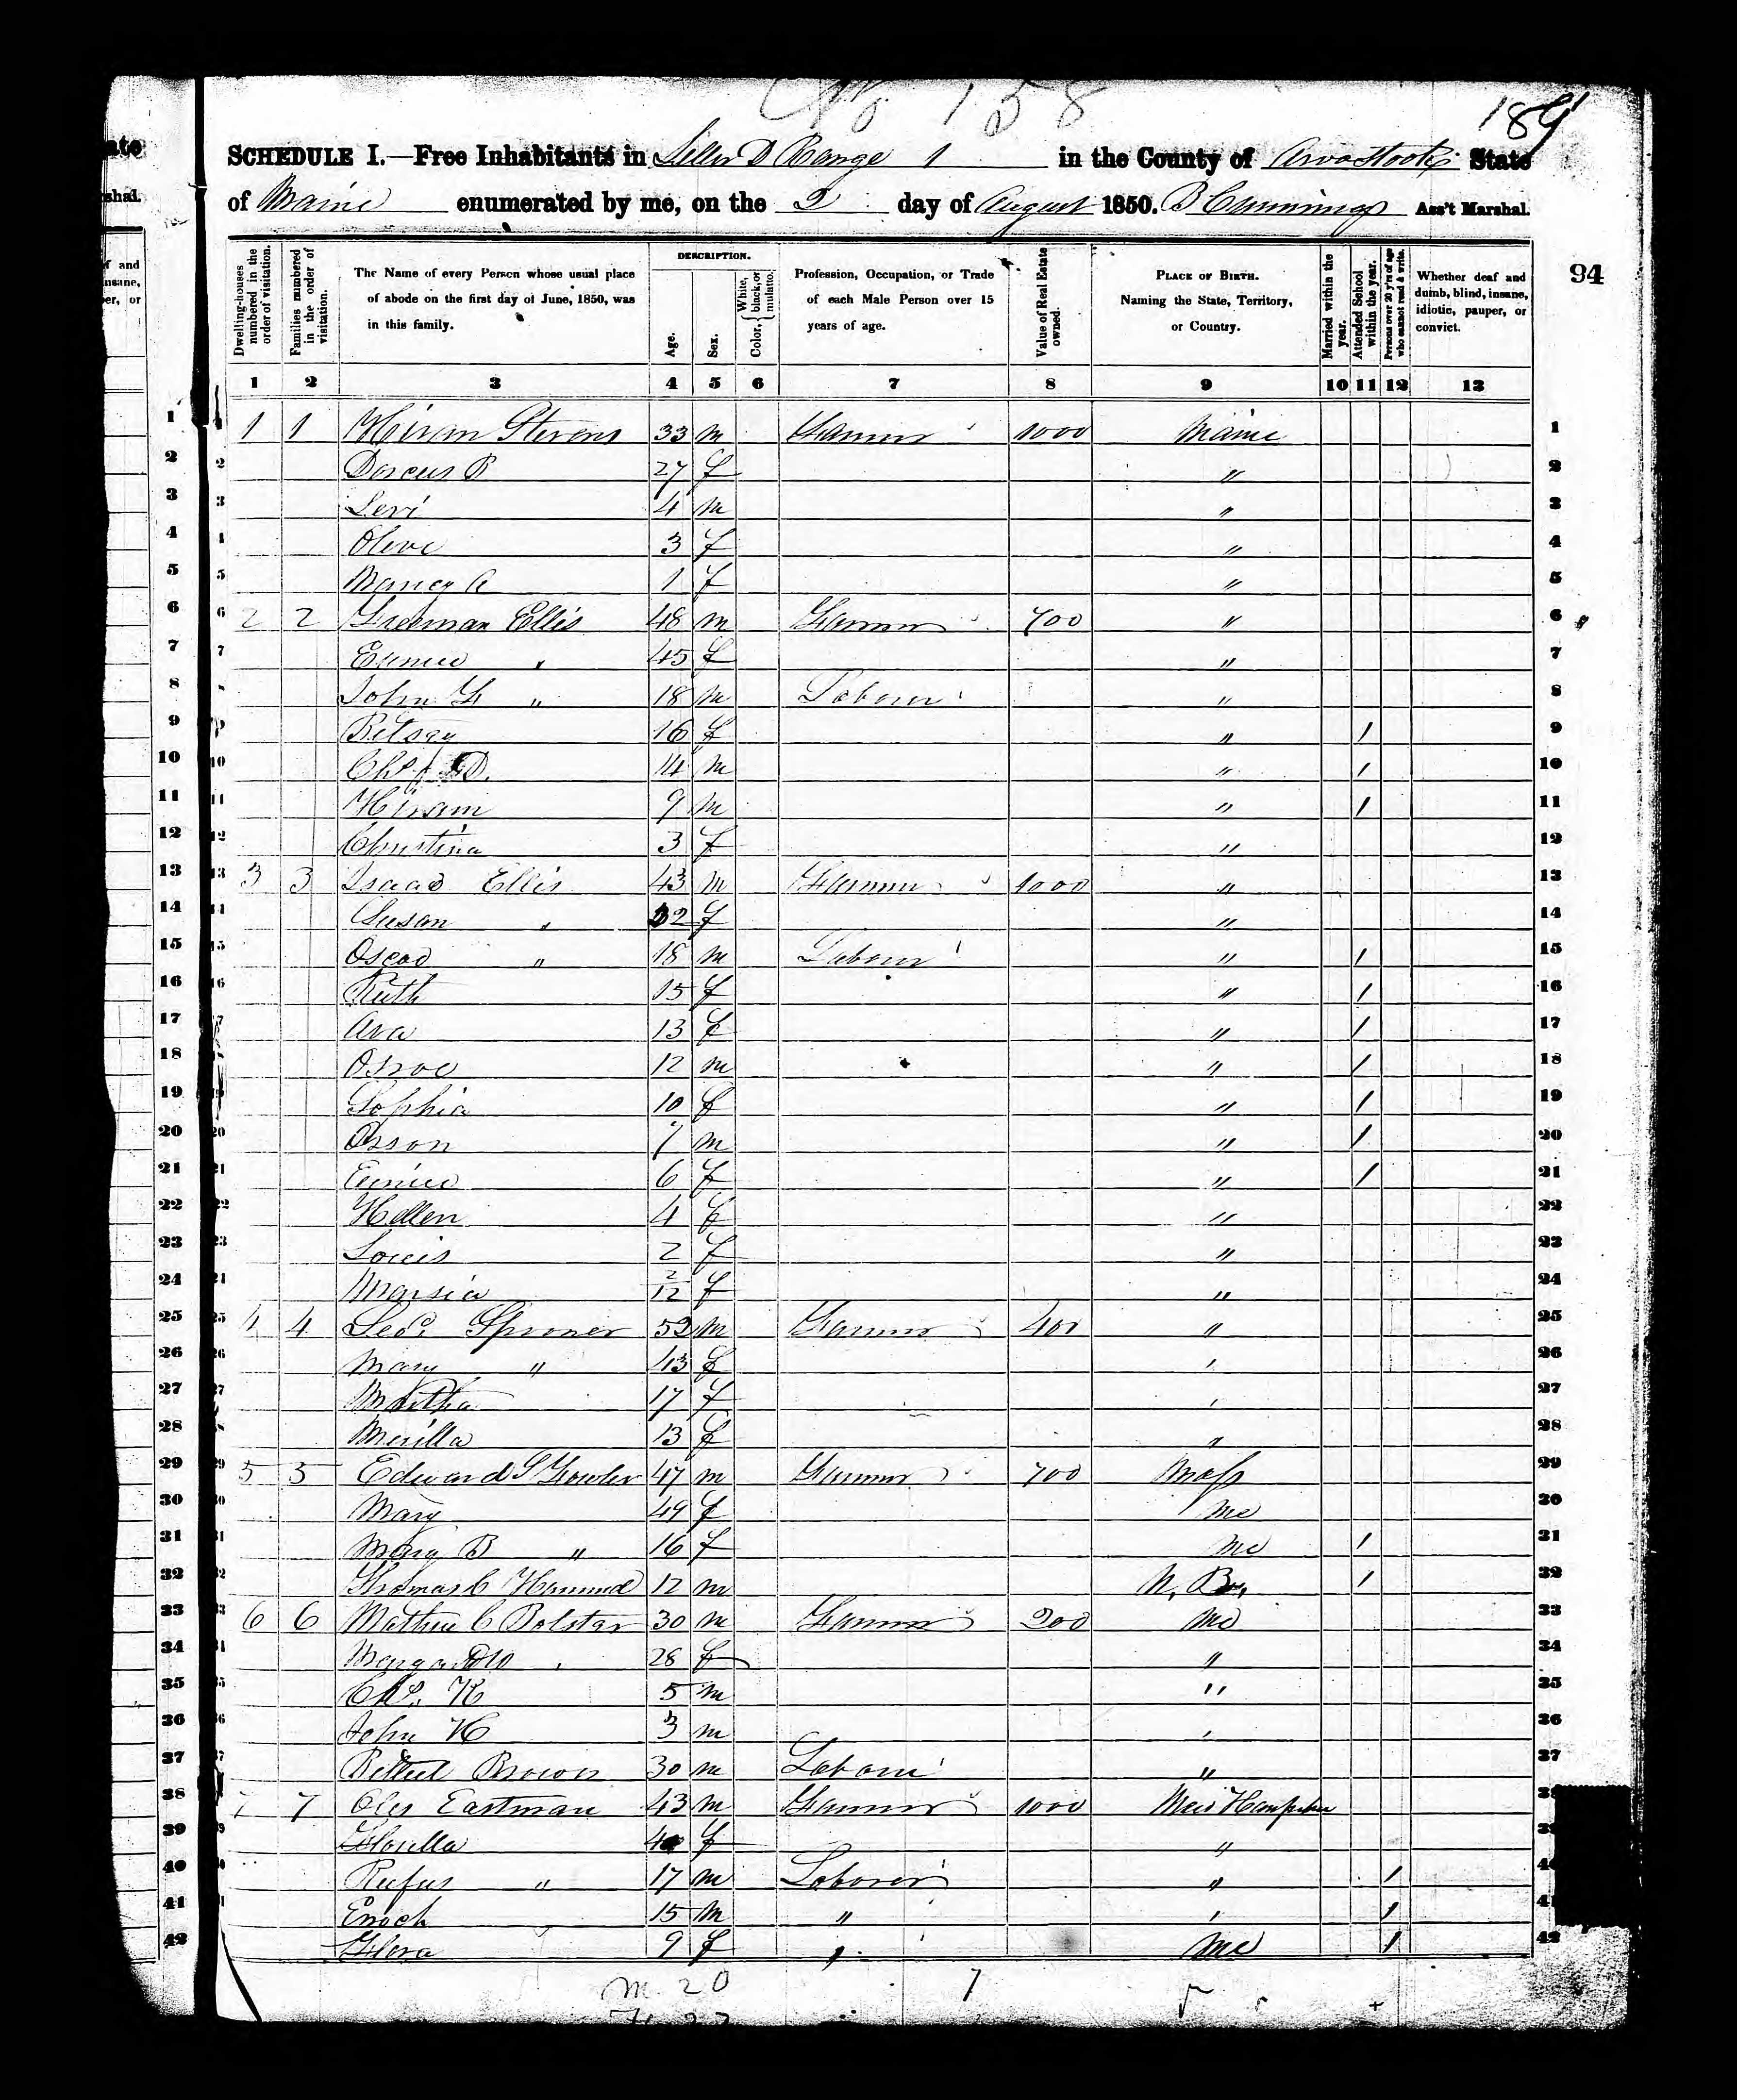 No 158
189
SCHEDULE I.—Free Inhabitants in Letter D Range 1 in the County of Aroostook State
of Maine enumerated by me, on the 2 day of August 1850. B Cummings Ass't Marshal.
94
Dwelling-houses numbered in the order of visitation.
Families numbered in the order of visitation.
The Name of every Person whose usual place of abode on the first day of June, 1850, was in this family.
DESCRIPTION.
Age.
Sex.
Color, { White, black, or mulatto.
Profession, Occupation, or Trade of each Male Person over 15 years of age.
Value of Real Estate owned.
PLACE OF BIRTH. Naming the State, Territory, or Country.
Married within the year.
Attended School within the year.
Persons over 20 y'rs of age who cannot read & write.
Whether deaf and dumb, blind, insane, idiotic, pauper, or convict.
1 2 3 4 5 6 7 8 9 10 11 12 13
1 1 1 Hiram Stevens 33 m Farmer 1000 Maine 1
2 Dorcus B 27 f " 2
3 Levi 4 m " 3
4 Olive 3 f " 4
5 Nancy A 1 f " 5
6 2 2 Freeman Ellis 48 m Farmer 700 " 6
7 Eunice " 45 f " 7
8 John F " 18 m Laborer " 8
9 Betsey 16 f " 1 9
10 Chs D. 14 m " 1 10
11 Hiram 9 m " 1 11
12 Christina 3 f " 12
13 3 3 Isaac Ellis 43 m Farmer 1000 " 13
14 Susan " 32 f " 14
15 Oscar " 18 m Laborer " 1 15
16 Ruth 15 f " 1 16
17 Ava 13 f " 1 17
18 12 m " 1 18
19 Sophia 10 f " 1 19
20 Orson 7 m " 1 20
21 Eunice 6 f " 1 21
22 Hellen 4 f " 22
23 Lovis 2 f " 23
24 Marsia 2/12 f " 24
25 4 4 Geo. Spooner 52 m Farmer 400 " 25
26 Mary " 43 f " 26
27 Martha 17 f " 27
28 Merilla 13 f " 28
29 5 5 Edward S Fowler 47 m Farmer 700 Mass 29
30 Mary 49 f Me 30
31 Mary B " 16 f Me 1 31
32 Thomas C Hammond 12 m N. Br. 1 32
33 6 6 Mathew C Bolster 30 m Farmer 200 Me 33
34 Margaret W " 28 f " 34
35 Chs. K 5 m " 35
36 John H 3 m " 36
37 Brown 30 m Laborer " 37
38 7 7 Eastman 43 m Farmer 1000 New Hampshire 38
39 Florilla 40 f " 39
40 Rufus " 17 m Laborer " 1 40
41 Enoch 15 m " " 1 41
42 Flora 9 f " Me 1 42
M. 20 7